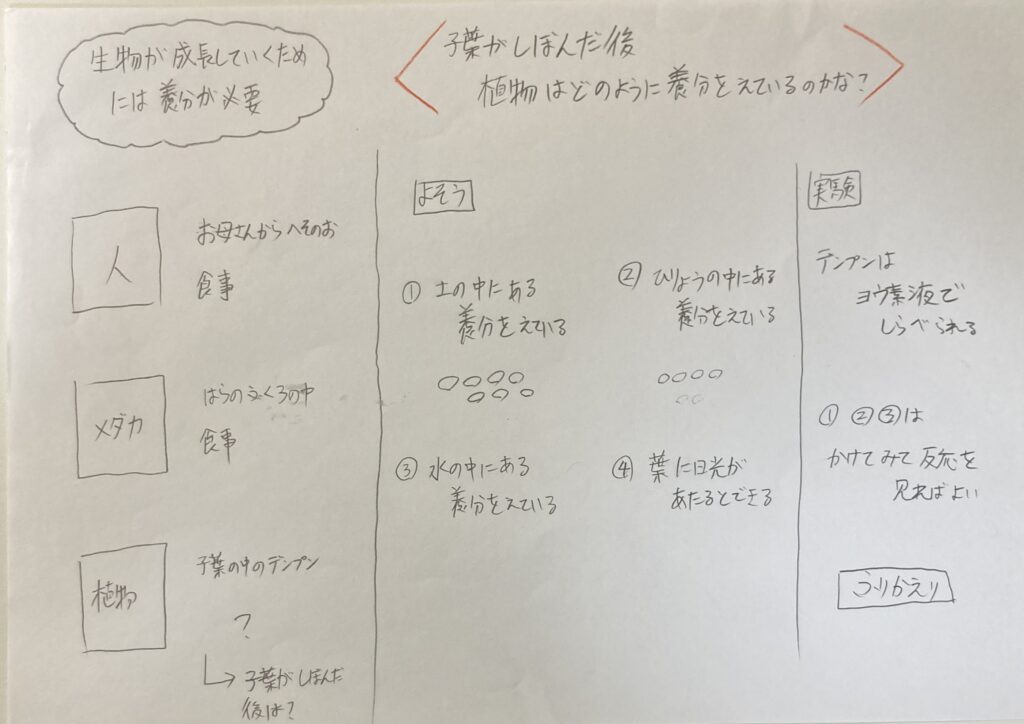 生物が成長していくため
には養分が必要
子葉がしぼんだ後
植物はどのように養分をえているのかな?
人
お母さんからへそのお
食事
メダカ
はらのふくろの中
食事
植物
子葉の中のデンプン
?
子葉がしぼんだ
後は?
よそう
① 土の中にある
養分をえている
② ひりょうの中にある
養分をえている
③ 水の中にある
養分をえている
④ 葉に日光が
あたるとできる
実験
デンプンは
ヨウ素液で
しらべられる
① ② ③は
かけてみて反応を
見ればよい
ふりかえり